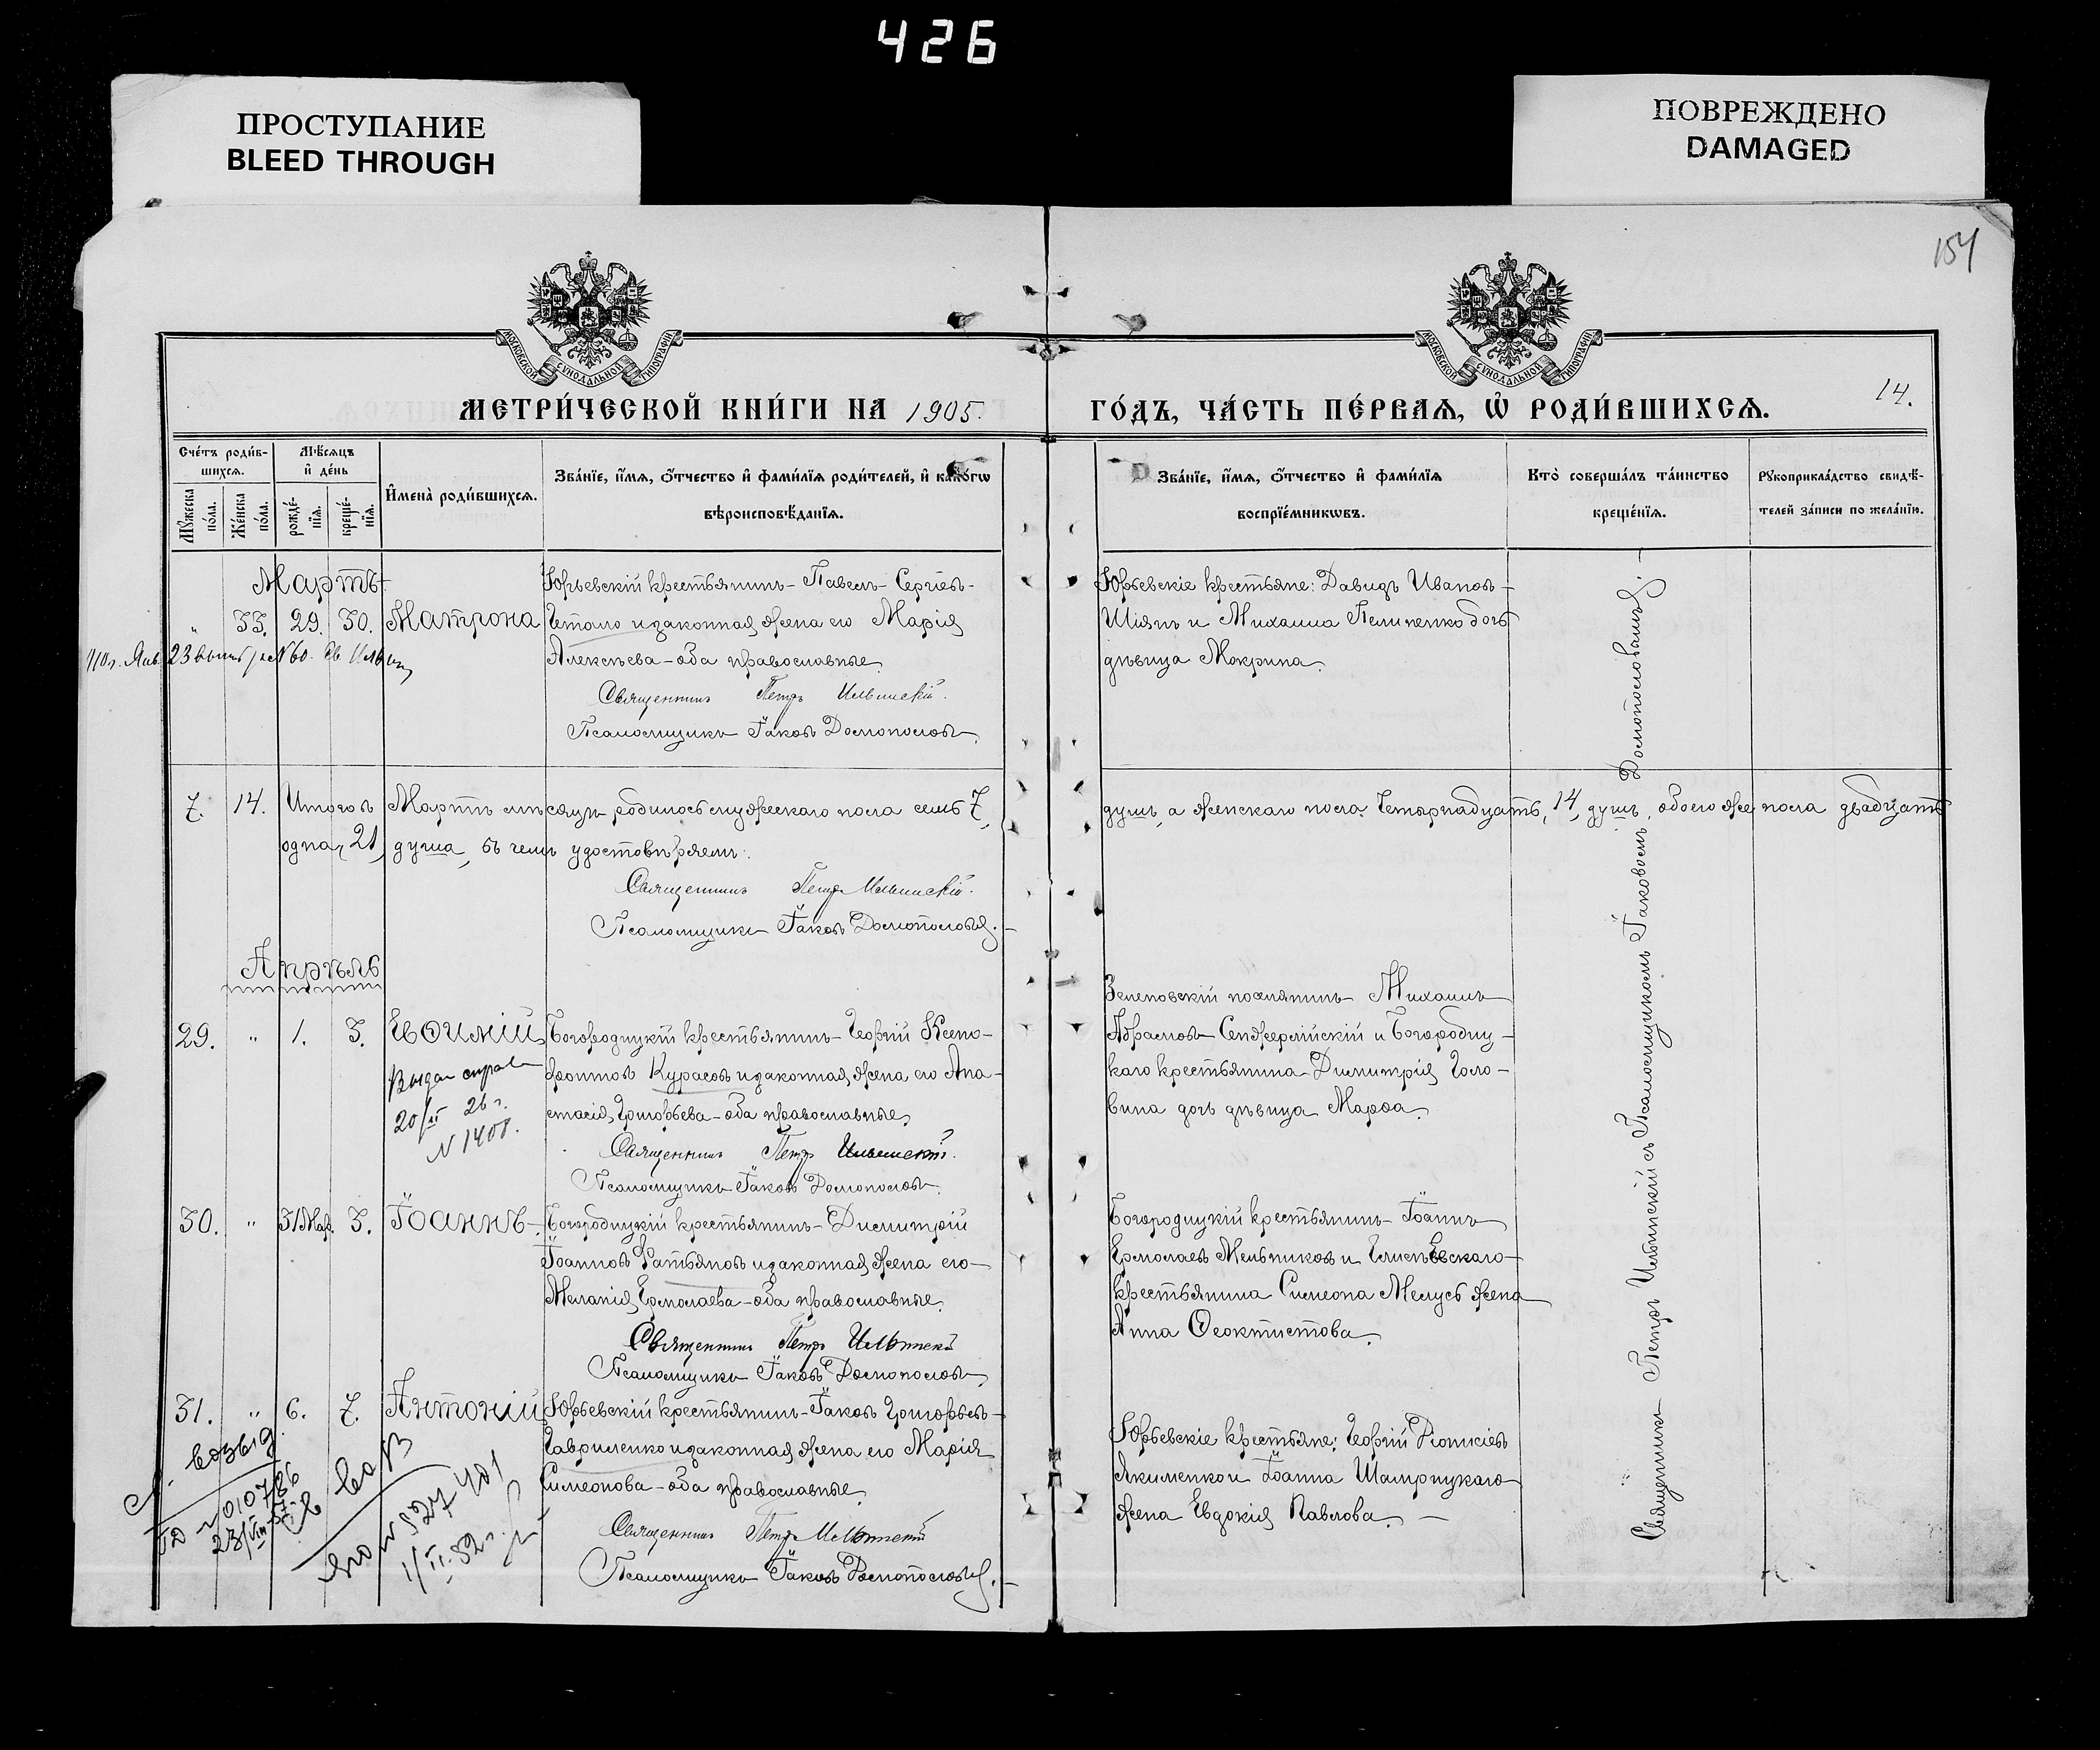 426
ПРОСТУПАНИЕ
BLEED THROUGH
ПОВРЕЖДЕНО
DAMAGED
154
МОСКОВСКОЙ СѴНОДАЛЬНОЙ ТИПОГРАФІИ
МОСКОВСКОЙ СѴНОДАЛЬНОЙ ТИПОГРАФІИ
МЕТРИ́ЧЕСКОЙ КНИ́ГИ НА 1905.
ГО́ДЪ, ЧА́СТЬ ПЕ́РВАѦ, Ѡ҆ РОДИ́ВШИХСѦ.
14.
Сче́тъ роди́в-
шихся.
Мѣ́сяцъ
и҆ де́нь
Мꙋ́жеска по́ла.
Же́нска по́ла.
рожде́-нїя.
креще́-нїя.
И҆мена̀ роди́вшихся.
Зва́нїе, и҆́мя, ѻ҆́тчество и҆ фами́лїя роди́телей, и҆ како́гѡ
вѣроисповѣ́данїя.
Зва́нїе, и҆́мя, ѻ҆́тчество и҆ фами́лїя
воспрїе́мникѡвъ.
Кто̀ соверша́лъ та́инство
креще́нїя.
Рꙋкоприкла́дство свидѣ́-
телей за́писи по жела́нїю.
Мартъ
" 33. 29. 30. Матрона
Юрьевскій крестьянинъ Павелъ Сергіевъ
законная жена его Марія
Алексѣева - оба православные
Священникъ Петръ Ильинскій.
Псаломщикъ Іаковъ Домопословъ
Юрьевскіе крестьяне: Давидъ Ивановъ
Шіянъ и Михаила дочь
дѣвица Мокрина.
7. 14. Итого въ Мартѣ мѣсяцѣ родилось мужескаго пола семь 7,
душъ, а женскаго пола четырнадцать, 14, душъ, обоего же пола двадцать
одна, 21, душа, въ чемъ удостовѣряемъ:
Священникъ Петръ Ильинскій.
Псаломщикъ Іаковъ Домопословъ.
Апрѣль
29. " 1. 3. Евѳимій
Выдан справ
20/ 26 г.
N 1408.
Богородицкій крестьянинъ Георгій Ксено-
фонтовъ Курасовъ и законная жена его Ана-
стасія Григорьева - оба православные
Священникъ Петръ Ильинскій.
Псаломщикъ Іаковъ Домопословъ.
Зеленовскій поселянинъ Михаилъ
Абрамовъ и Богородиц-
каго крестьянина Димитрія Голо-
вина дочь дѣвица Марѳа.
30. " 31 Мар. 3. Іоаннъ
Богородицкій крестьянинъ Димитрій
Іоанновъ Фатьяновъ и законная жена его
Меланія Ермолаева - оба православные.
Священникъ Петръ Ильинскій
Псаломщикъ Іаковъ Домопословъ
Богородицкій крестьянинъ Іоаннъ
Ермолаевъ Мельниковъ и
крестьянина Симеона жена
Анна Ѳеоктистова.
31. " 6. 7. Антоній
Юрьевскій крестьянинъ Іаковъ Григорьевъ
Гавриленко и законная жена его Марія
Симеонова - оба православные
Священникъ Петръ Ильинскій
Псаломщикъ Іаковъ Домопословъ.
Юрьевскіе крестьяне: Георгій Діонисіевъ
Якименко и Іоанна
жена Евдокія Павлова.
Священникъ Петръ Ильинскій съ Псаломщикомъ Іаковомъ Домопословымъ.